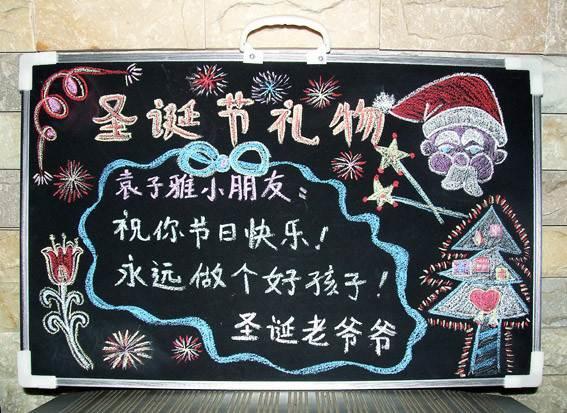 圣诞节礼物
袁子雅小朋友：
祝你节日快乐！
永远做个好孩子！
圣诞老爷爷